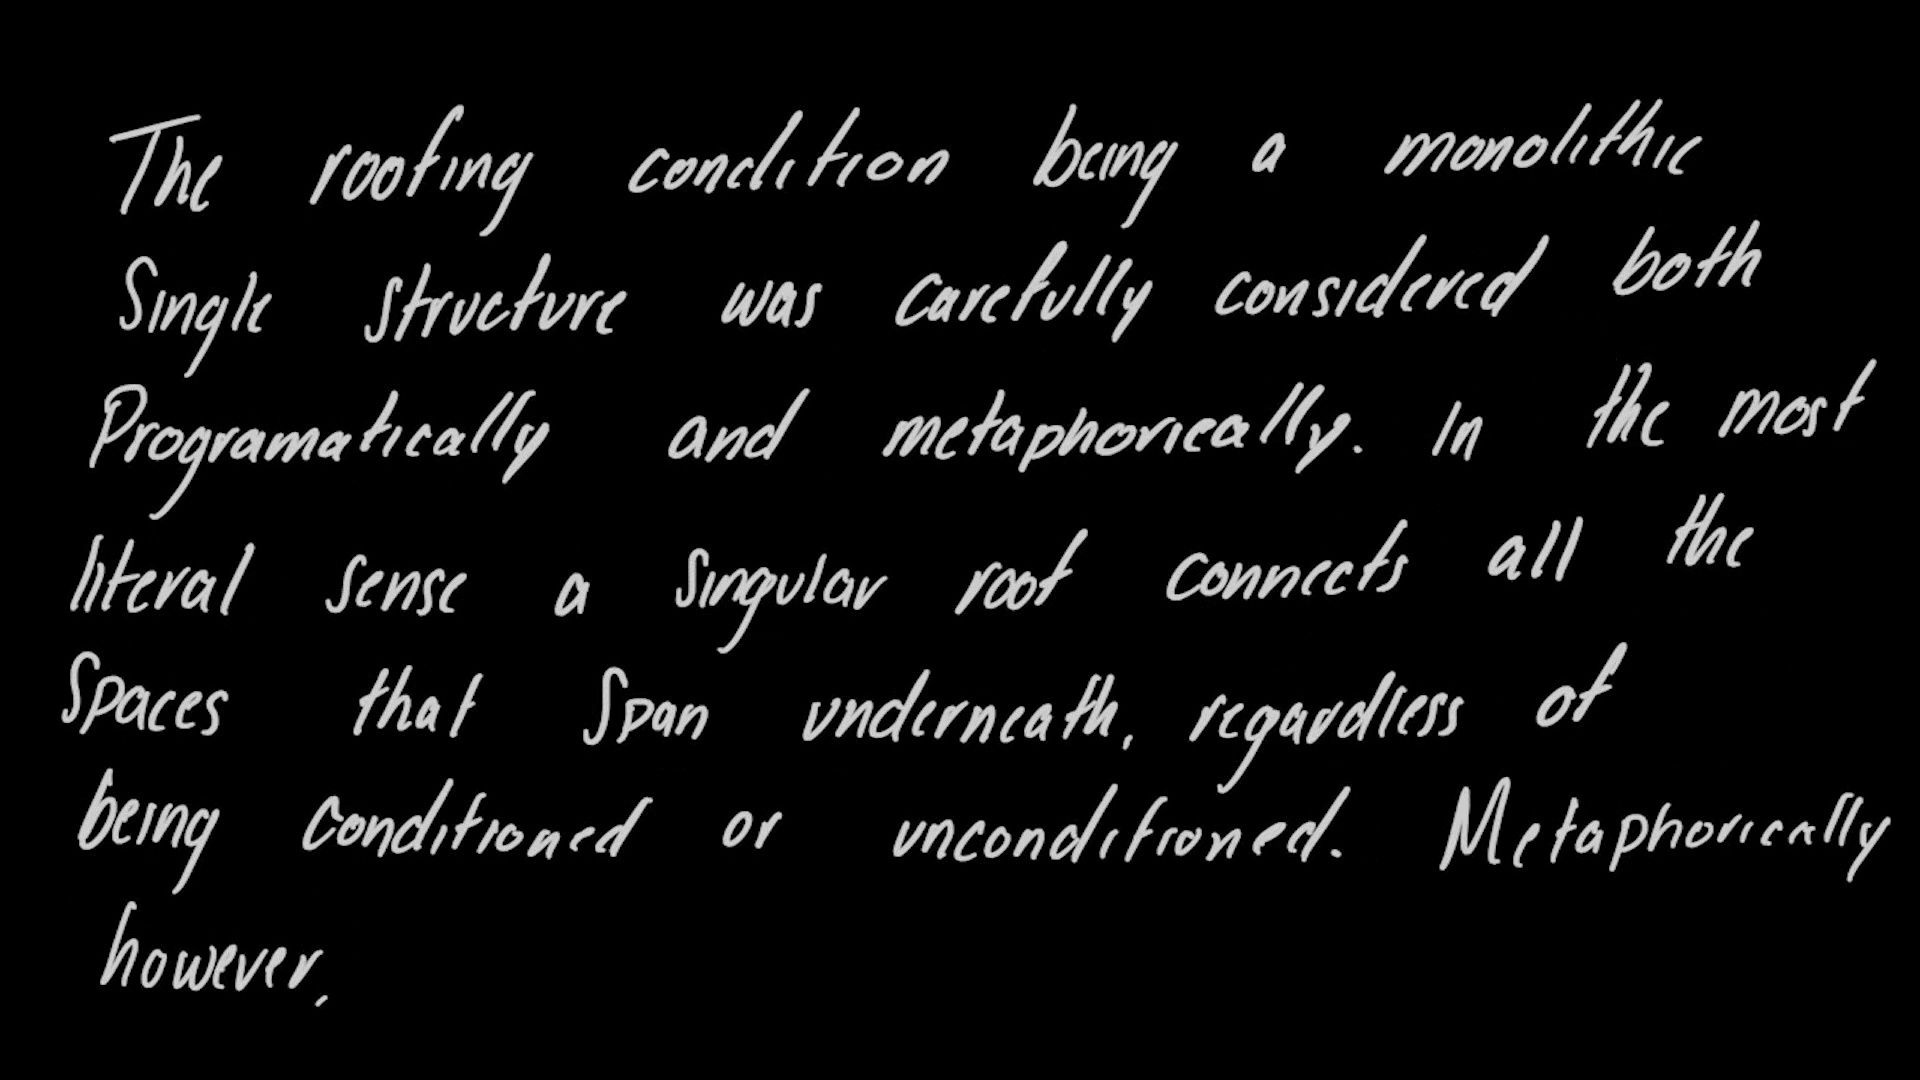 The roofing condition being a monolithic
Single structure was carefully considered both
Programatically and metaphorically. In the most
literal sense a singular roof connects all the
Spaces that Span underneath, regardless of
being conditioned or unconditioned. Metaphorically
however,